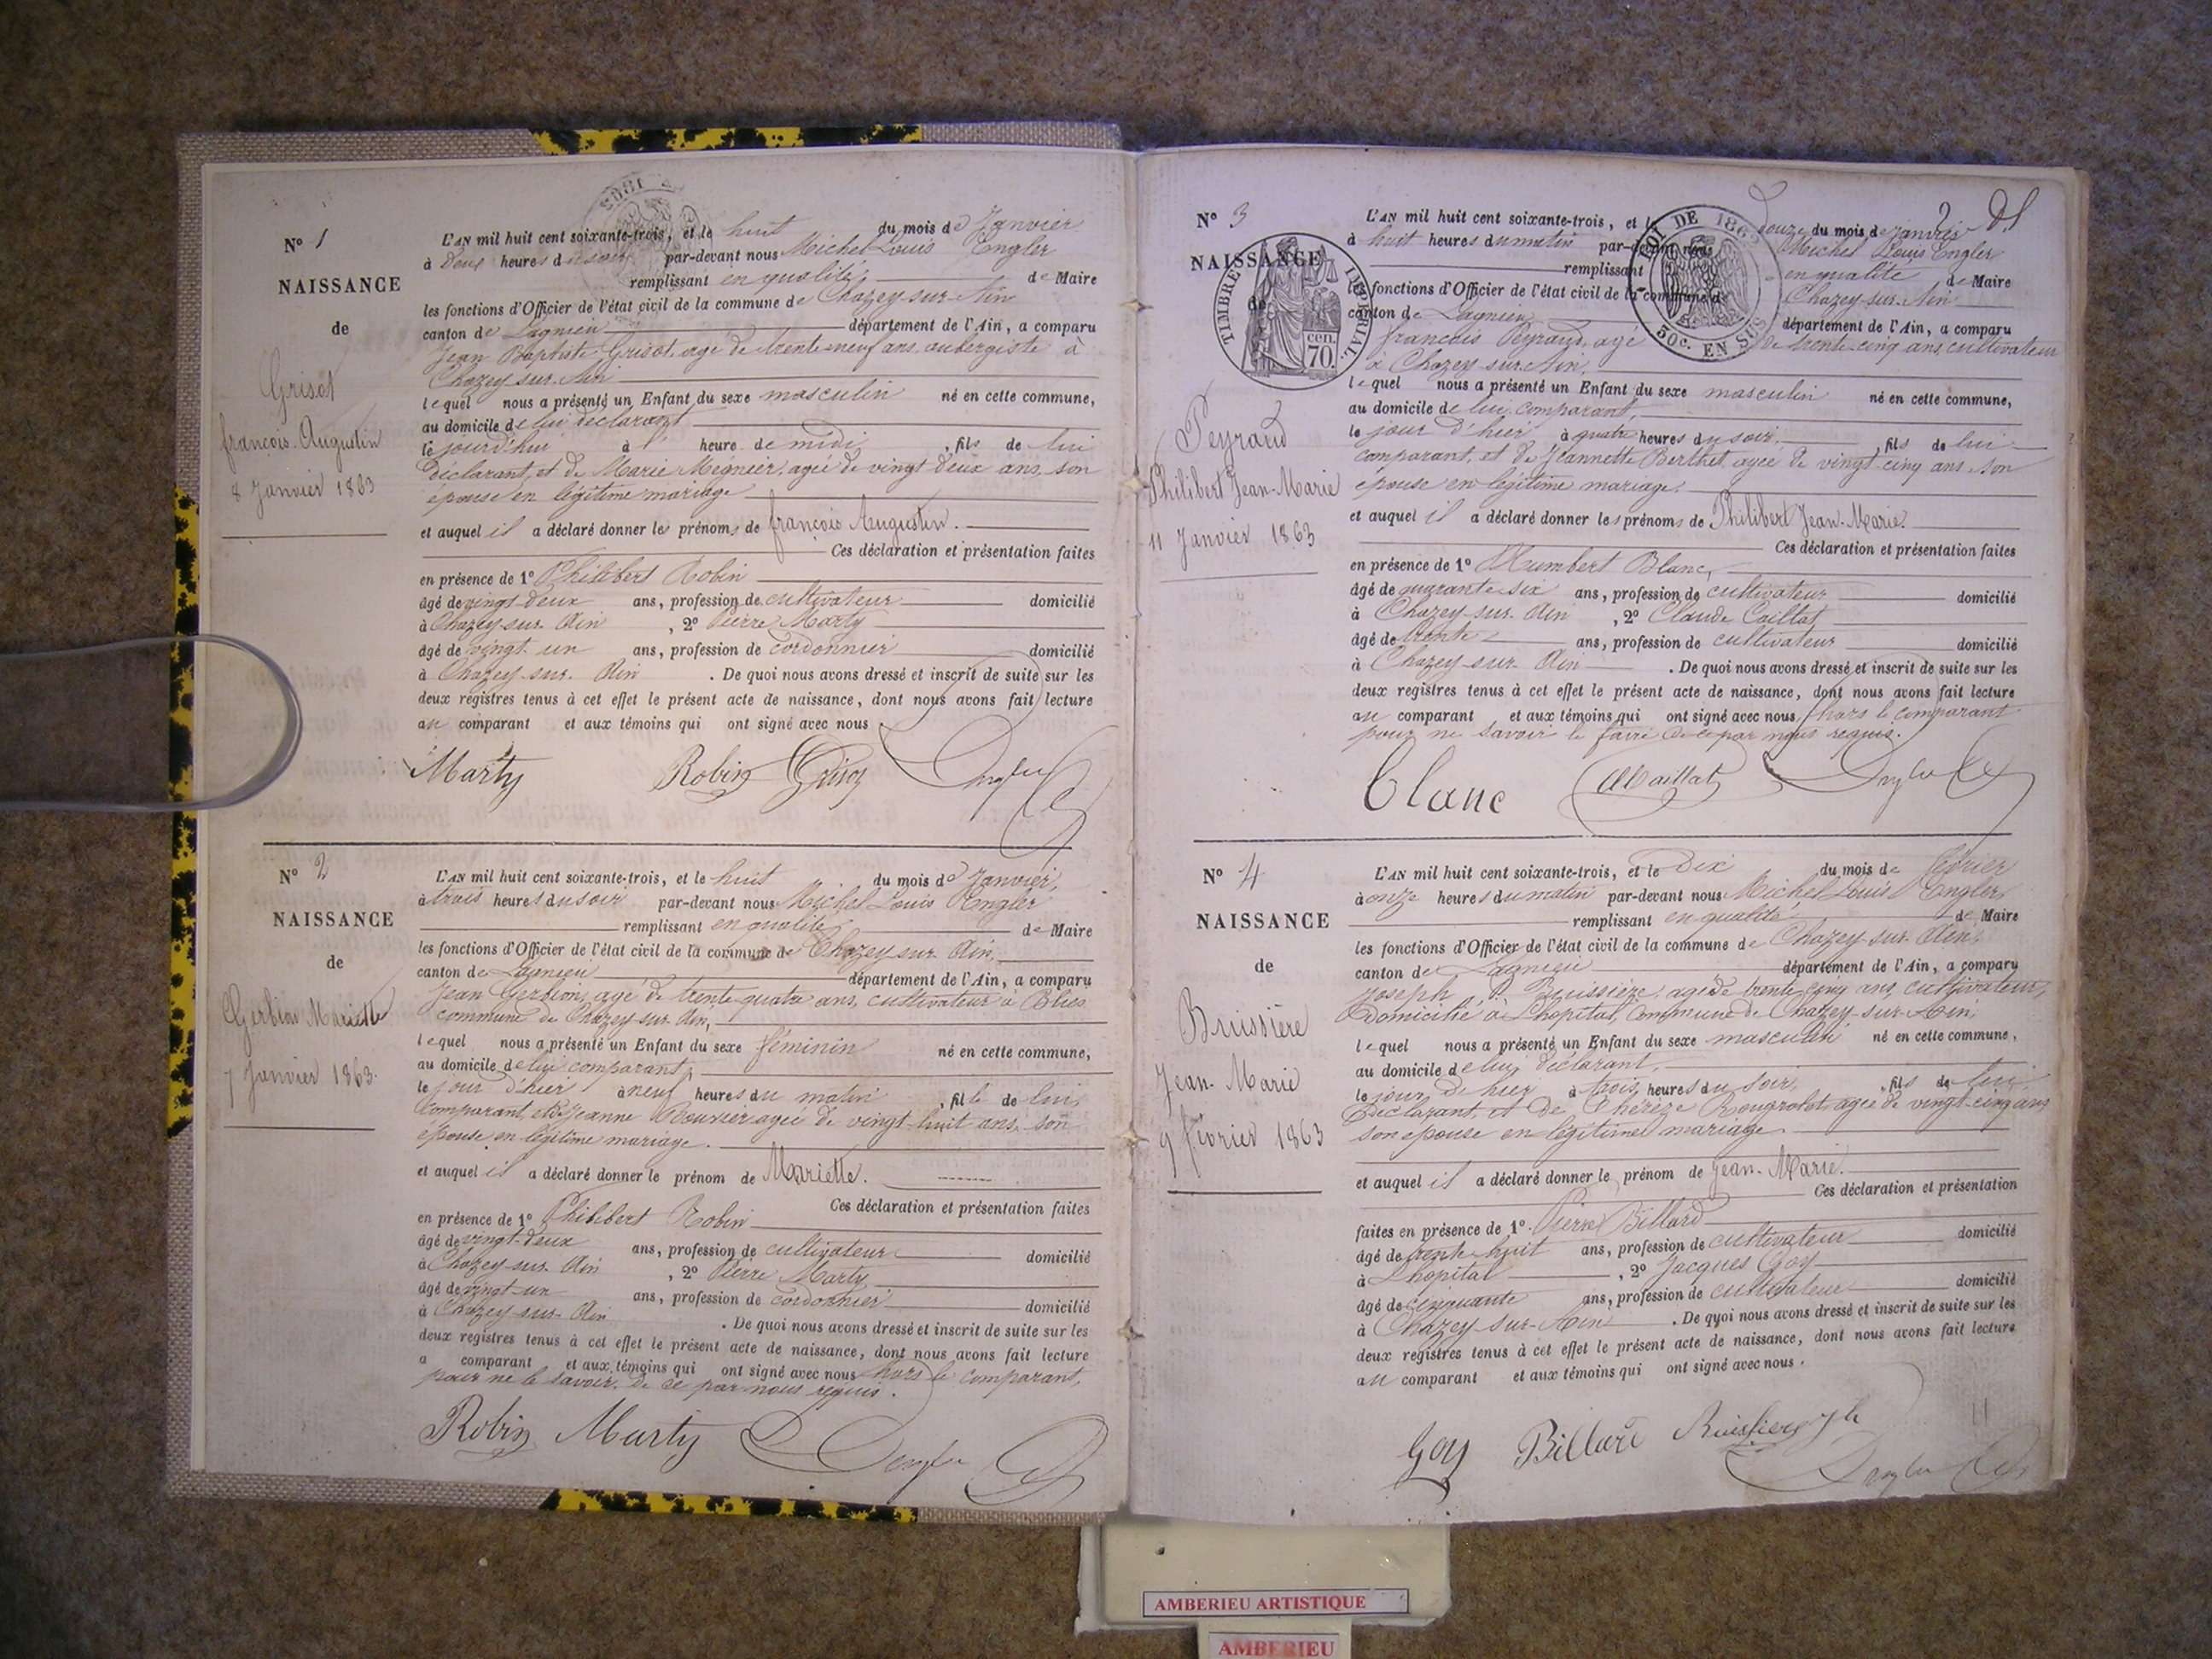 N° 1
NAISSANCE
de
Grisot
françois-Augustin
8 Janvier 1863
L'AN mil huit cent soixante-trois, et le huit du mois de Janvier
à Deux heures du soir par-devant nous Michel Louis Engler
remplissant en qualité de Maire
les fonctions d'Officier de l'état civil de la commune de Chazey-sur-Ain
canton de Lagnieu département de l'Ain, a comparu
Jean Baptiste Grisot, agé de trente-neuf ans, aubergiste à
Chazey-sur-Ain
lequel nous a présenté un Enfant du sexe masculin né en cette commune,
au domicile de lui déclarant
le jourd'hui à l' heure de midi, fils de lui
Déclarant, et de Marie Mégnier, agée de vingt deux ans, son
épouse en légitime mariage
et auquel il a déclaré donner les prénoms de françois Augustin.
Ces déclaration et présentation faites
en présence de 1° Philibert Robin
âgé de vingt-deux ans, profession de cultivateur domicilié
à Chazey-sur-Ain, 2° Pierre Marty
âgé de vingt-un ans, profession de cordonnier domicilié
à Chazey-sur-Ain. De quoi nous avons dressé et inscrit de suite sur les
deux registres tenus à cet effet le présent acte de naissance, dont nous avons fait lecture
au comparant et aux témoins qui ont signé avec nous
Marty Robin Grisot Engler
N° 2
NAISSANCE
de
Gerbion Mariette
7 Janvier 1863.
L'AN mil huit cent soixante-trois, et le huit du mois de Janvier,
à trois heures du soir par-devant nous Michel Louis Engler
remplissant en qualité de Maire
les fonctions d'Officier de l'état civil de la commune de Chazey-sur-Ain,
canton de Lagnieu département de l'Ain, a comparu
Jean Gerbion, agé de trente-quatre ans, cultivateur à Blies
commune de Chazey-sur-Ain,
lequel nous a présenté un Enfant du sexe féminin né en cette commune,
au domicile de lui comparant,
le jour d'hier à neuf heures du matin, fille de lui,
comparant, et de Jeanne Bouvier agée de vingt-huit ans, son
épouse en légitime mariage.
et auquel il a déclaré donner le prénom de Mariette.
Ces déclaration et présentation faites
en présence de 1° Philibert Robin
âgé de vingt-deux ans, profession de cultivateur domicilié
à Chazey-sur-Ain, 2° Pierre Marty
âgé de vingt-un ans, profession de cordonnier domicilié
à Chazey-sur-Ain. De quoi nous avons dressé et inscrit de suite sur les
deux registres tenus à cet effet le présent acte de naissance, dont nous avons fait lecture
a comparant et aux témoins qui ont signé avec nous hors le comparant,
pour ne le savoir, de ce par nous requis.
Robin Marty Engler
2
N° 3
NAISSANCE
de
TIMBRE IMPERIAL.
cen. 70.
LOI DE 1862
50c. EN SUS
Peyraud
Philibert Jean-Marie
11 Janvier 1863
L'AN mil huit cent soixante-trois, et le douze du mois de Janvier
à huit heures du matin par-devant nous Michel Louis Engler
remplissant en qualité de Maire
les fonctions d'Officier de l'état civil de la commune de Chazey-sur-Ain
canton de Lagnieu département de l'Ain, a comparu
françois Peyraud, agé de trente-cinq ans, cultivateur
à Chazey-sur-Ain,
lequel nous a présenté un Enfant du sexe masculin né en cette commune,
au domicile de lui, comparant,
le jour d'hier à quatre heures du soir, fils de lui
comparant, et de Jeannette Berthet, agée de vingt-cinq ans, son
épouse en légitime mariage.
et auquel il a déclaré donner les prénoms de Philibert Jean-Marie.
Ces déclaration et présentation faites
en présence de 1° Humbert Blanc,
âgé de quarante-six ans, profession de cultivateur domicilié
à Chazey-sur-Ain, 2° Claude Caillat
âgé de trente ans, profession de cultivateur domicilié
à Chazey-sur-Ain. De quoi nous avons dressé et inscrit de suite sur les
deux registres tenus à cet effet le présent acte de naissance, dont nous avons fait lecture
au comparant et aux témoins qui ont signé avec nous, hors le comparant
pour ne savoir le faire de ce par nous requis.
Blanc Engler
N° 4
NAISSANCE
de
Buissière
Jean-Marie
9 février 1863
L'AN mil huit cent soixante-trois, et le Dix du mois de février
à onze heures du matin par-devant nous Michel Louis Engler,
remplissant en qualité de Maire
les fonctions d'Officier de l'état civil de la commune de Chazey-sur-Ain,
canton de Lagnieu département de l'Ain, a comparu
Joseph Buissière, agé de trente-cinq ans, cultivateur,
Domicilié à L'hopital, Commune de Chazey-sur-Ain,
lequel nous a présenté un Enfant du sexe masculin né en cette commune,
au domicile de lui, déclarant,
le jour de hier à trois heures du soir, fils de lui,
Déclarant, et de Thérèze agée de vingt-cinq ans
son épouse en légitime mariage.
et auquel il a déclaré donner le prénom de Jean-Marie.
Ces déclaration et présentation
faites en présence de 1° Pierre Billard
âgé de trente-huit ans, profession de cultivateur domicilié
à L'hopital, 2° Jacques Goy
âgé de cinquante ans, profession de cultivateur domicilié
à Chazey-sur-Ain. De quoi nous avons dressé et inscrit de suite sur les
deux registres tenus à cet effet le présent acte de naissance, dont nous avons fait lecture
au comparant et aux témoins qui ont signé avec nous.
Goy Billard Buissiere Engler
AMBERIEU ARTISTIQUE
AMBERIEU